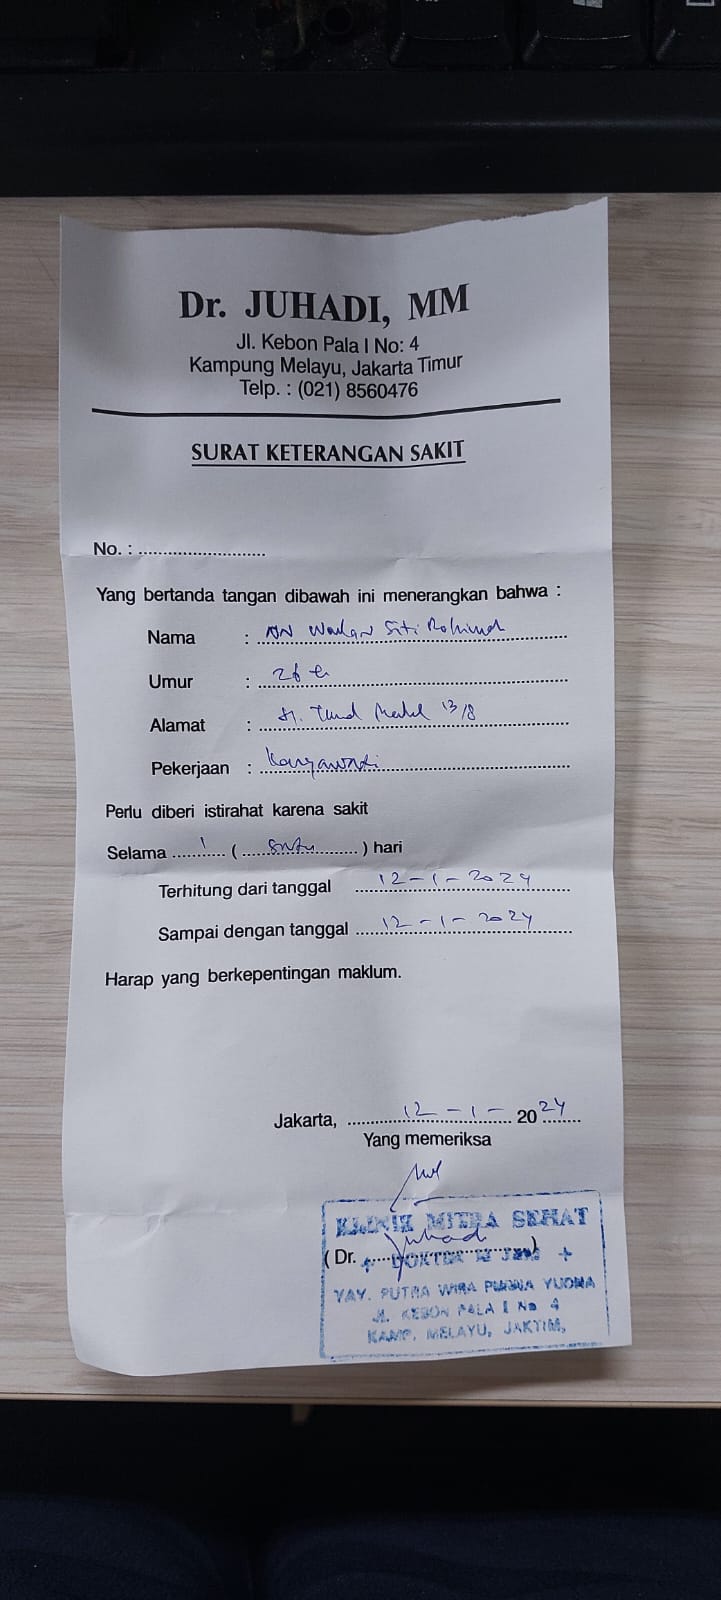 Dr. JUHADI, MM
Jl. Kebon Pala I No: 4
Kampung Melayu, Jakarta Timur
Telp. : (021) 8560476
SURAT KETERANGAN SAKIT
No. : ..........................
Yang bertanda tangan dibawah ini menerangkan bahwa :
Nama : Siti
Umur : 26
Alamat : 13/8
Pekerjaan : Karyawati
Perlu diberi istirahat karena sakit
Selama 1 ( satu ) hari
Terhitung dari tanggal 12-1-2024
Sampai dengan tanggal 12-1-2024
Harap yang berkepentingan maklum.
Jakarta, 12-1- 2024
Yang memeriksa
KLINIK MITRA SEHAT
(Dr. Juhadi)
YAY. PUTRA WIRA YUDHA
JL. KEBON PALA I No 4
KAMP. MELAYU, JAKTIM,